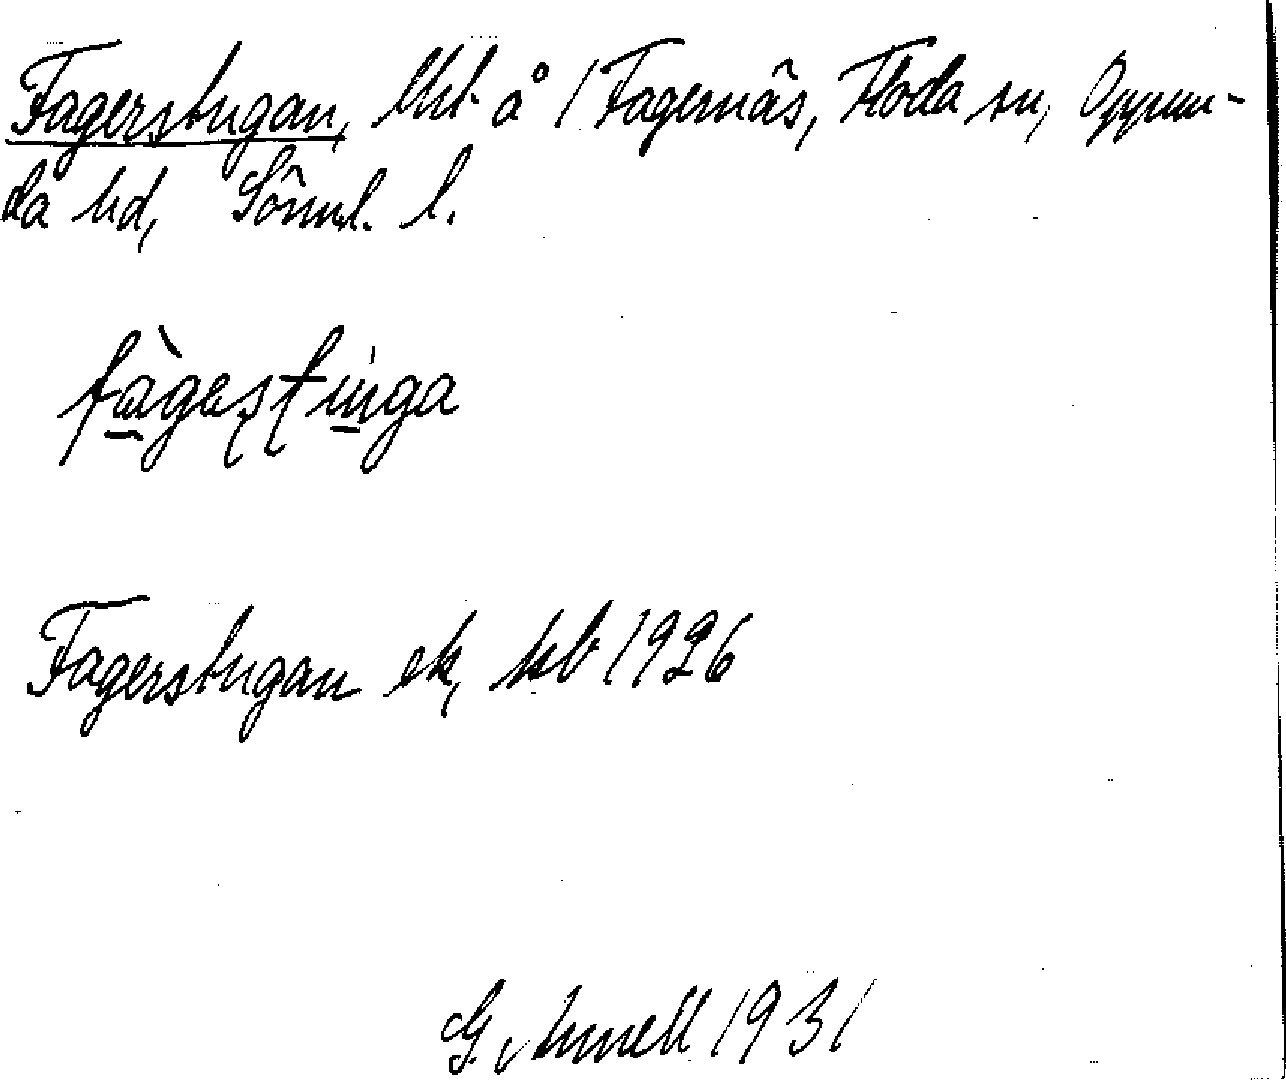 Fagerstugan, lht å 1 Fagernäs, Floda sn, Oppun-
da hd, Söml. l.
fàgestuga
Fagerstugan ek, kb 1926
G. Annell 1931